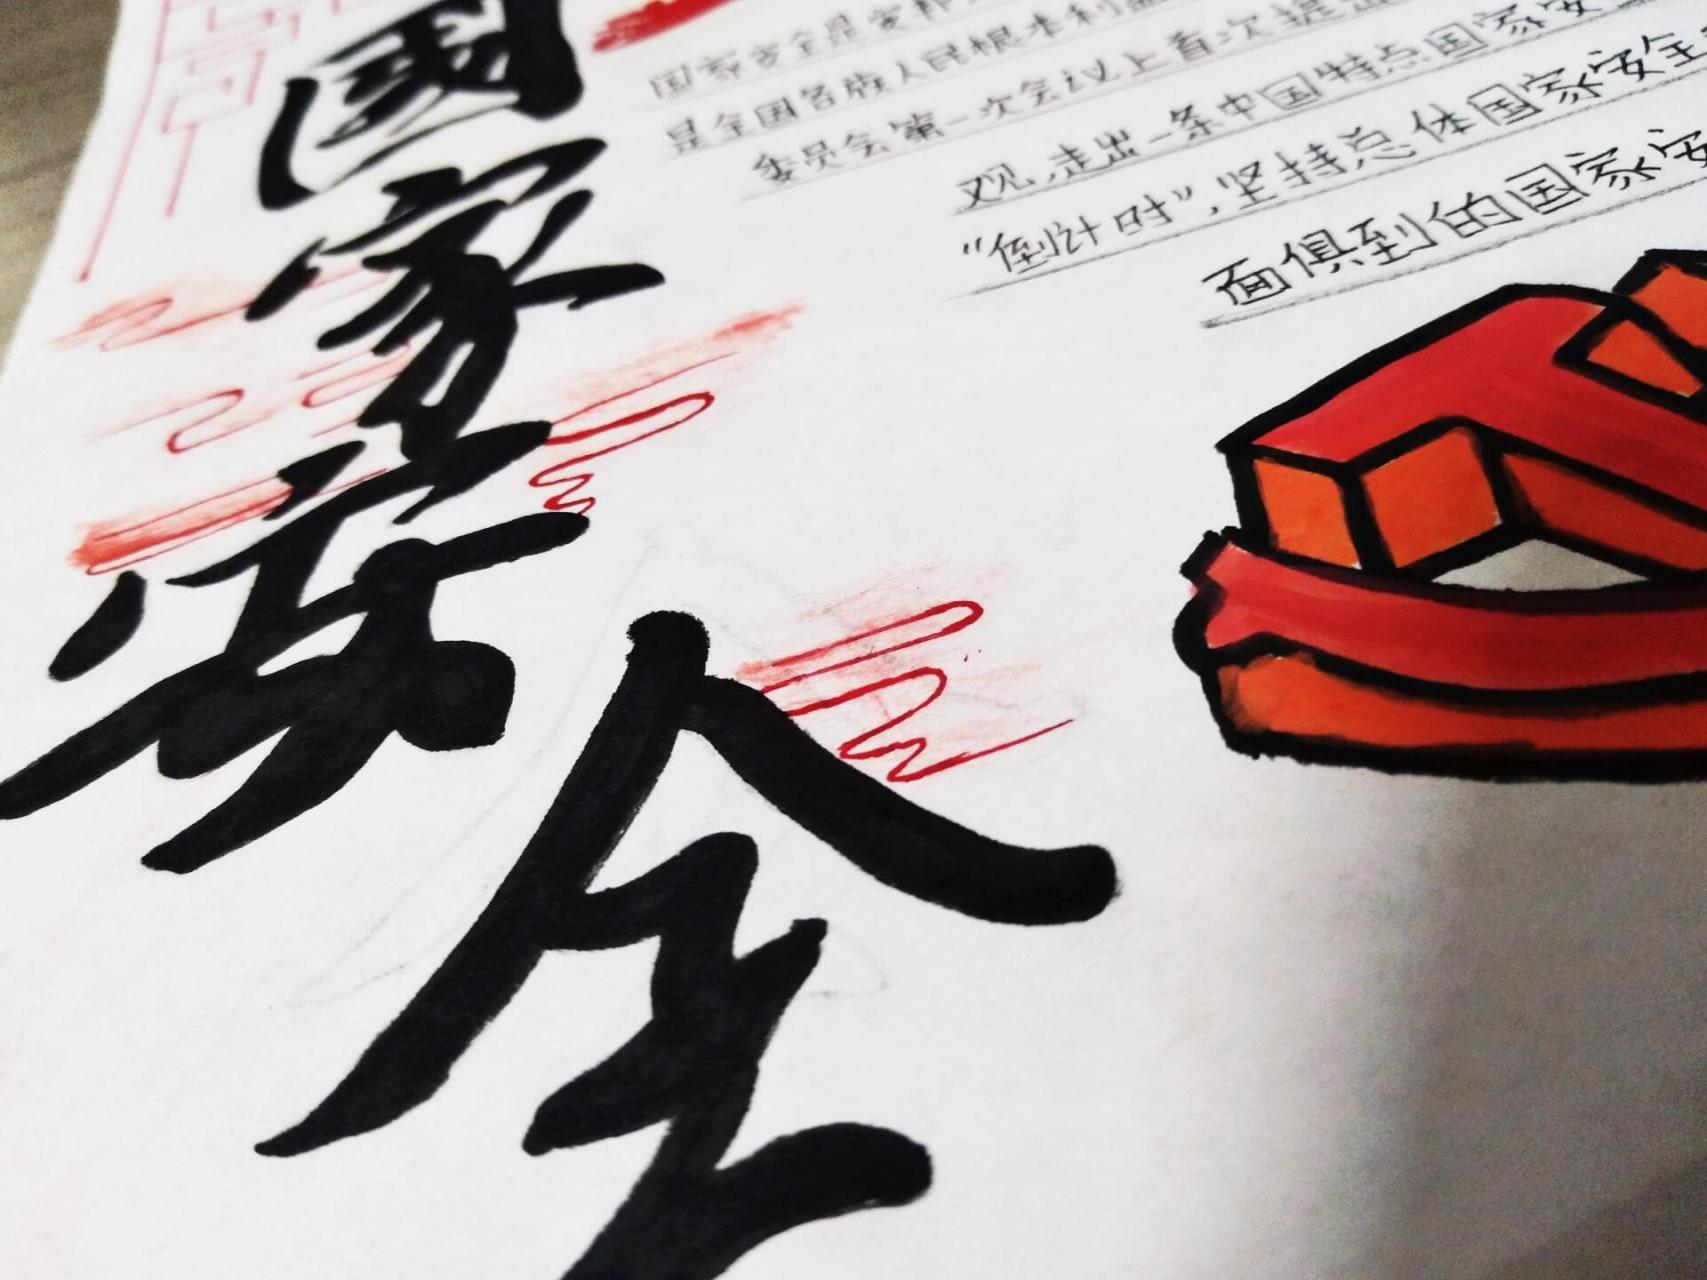 國家安全
国家安全是安邦
是全国各族人民根本利益
委员会第一次会议上首次提出
观,走出一条中国特点国家安
“倒计时”,坚持总体国家安全
面俱到的国家安